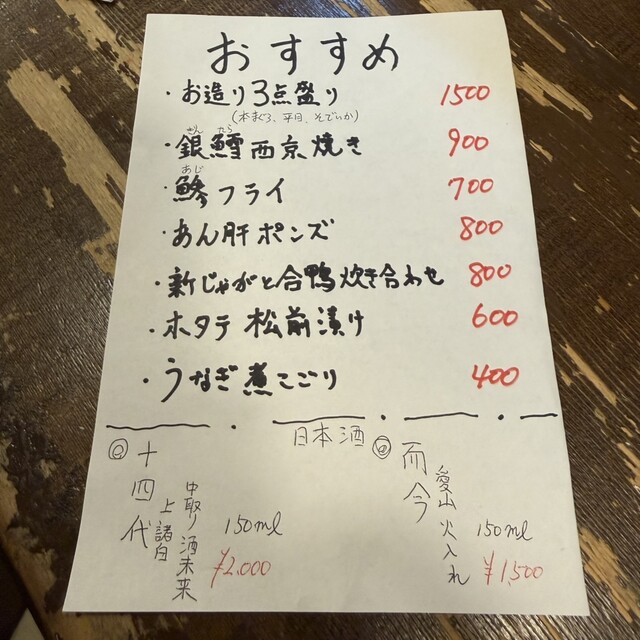 おすすめ
・お造り3点盛り 1500
(本まぐろ、平目、そでいか)
ぎん たら
・銀鱈西京焼き 900
あじ
・鯵フライ 700
・あん肝ポンズ 800
・新じゃがと合鴨炊き合わせ 800
・ホタテ松前漬け 600
・うなぎ煮こごり 400
日本酒
◎十四代
中取り 酒未来
上諸白
150ml
¥2,000
◎而今
愛山 火入れ
150ml
¥1,500